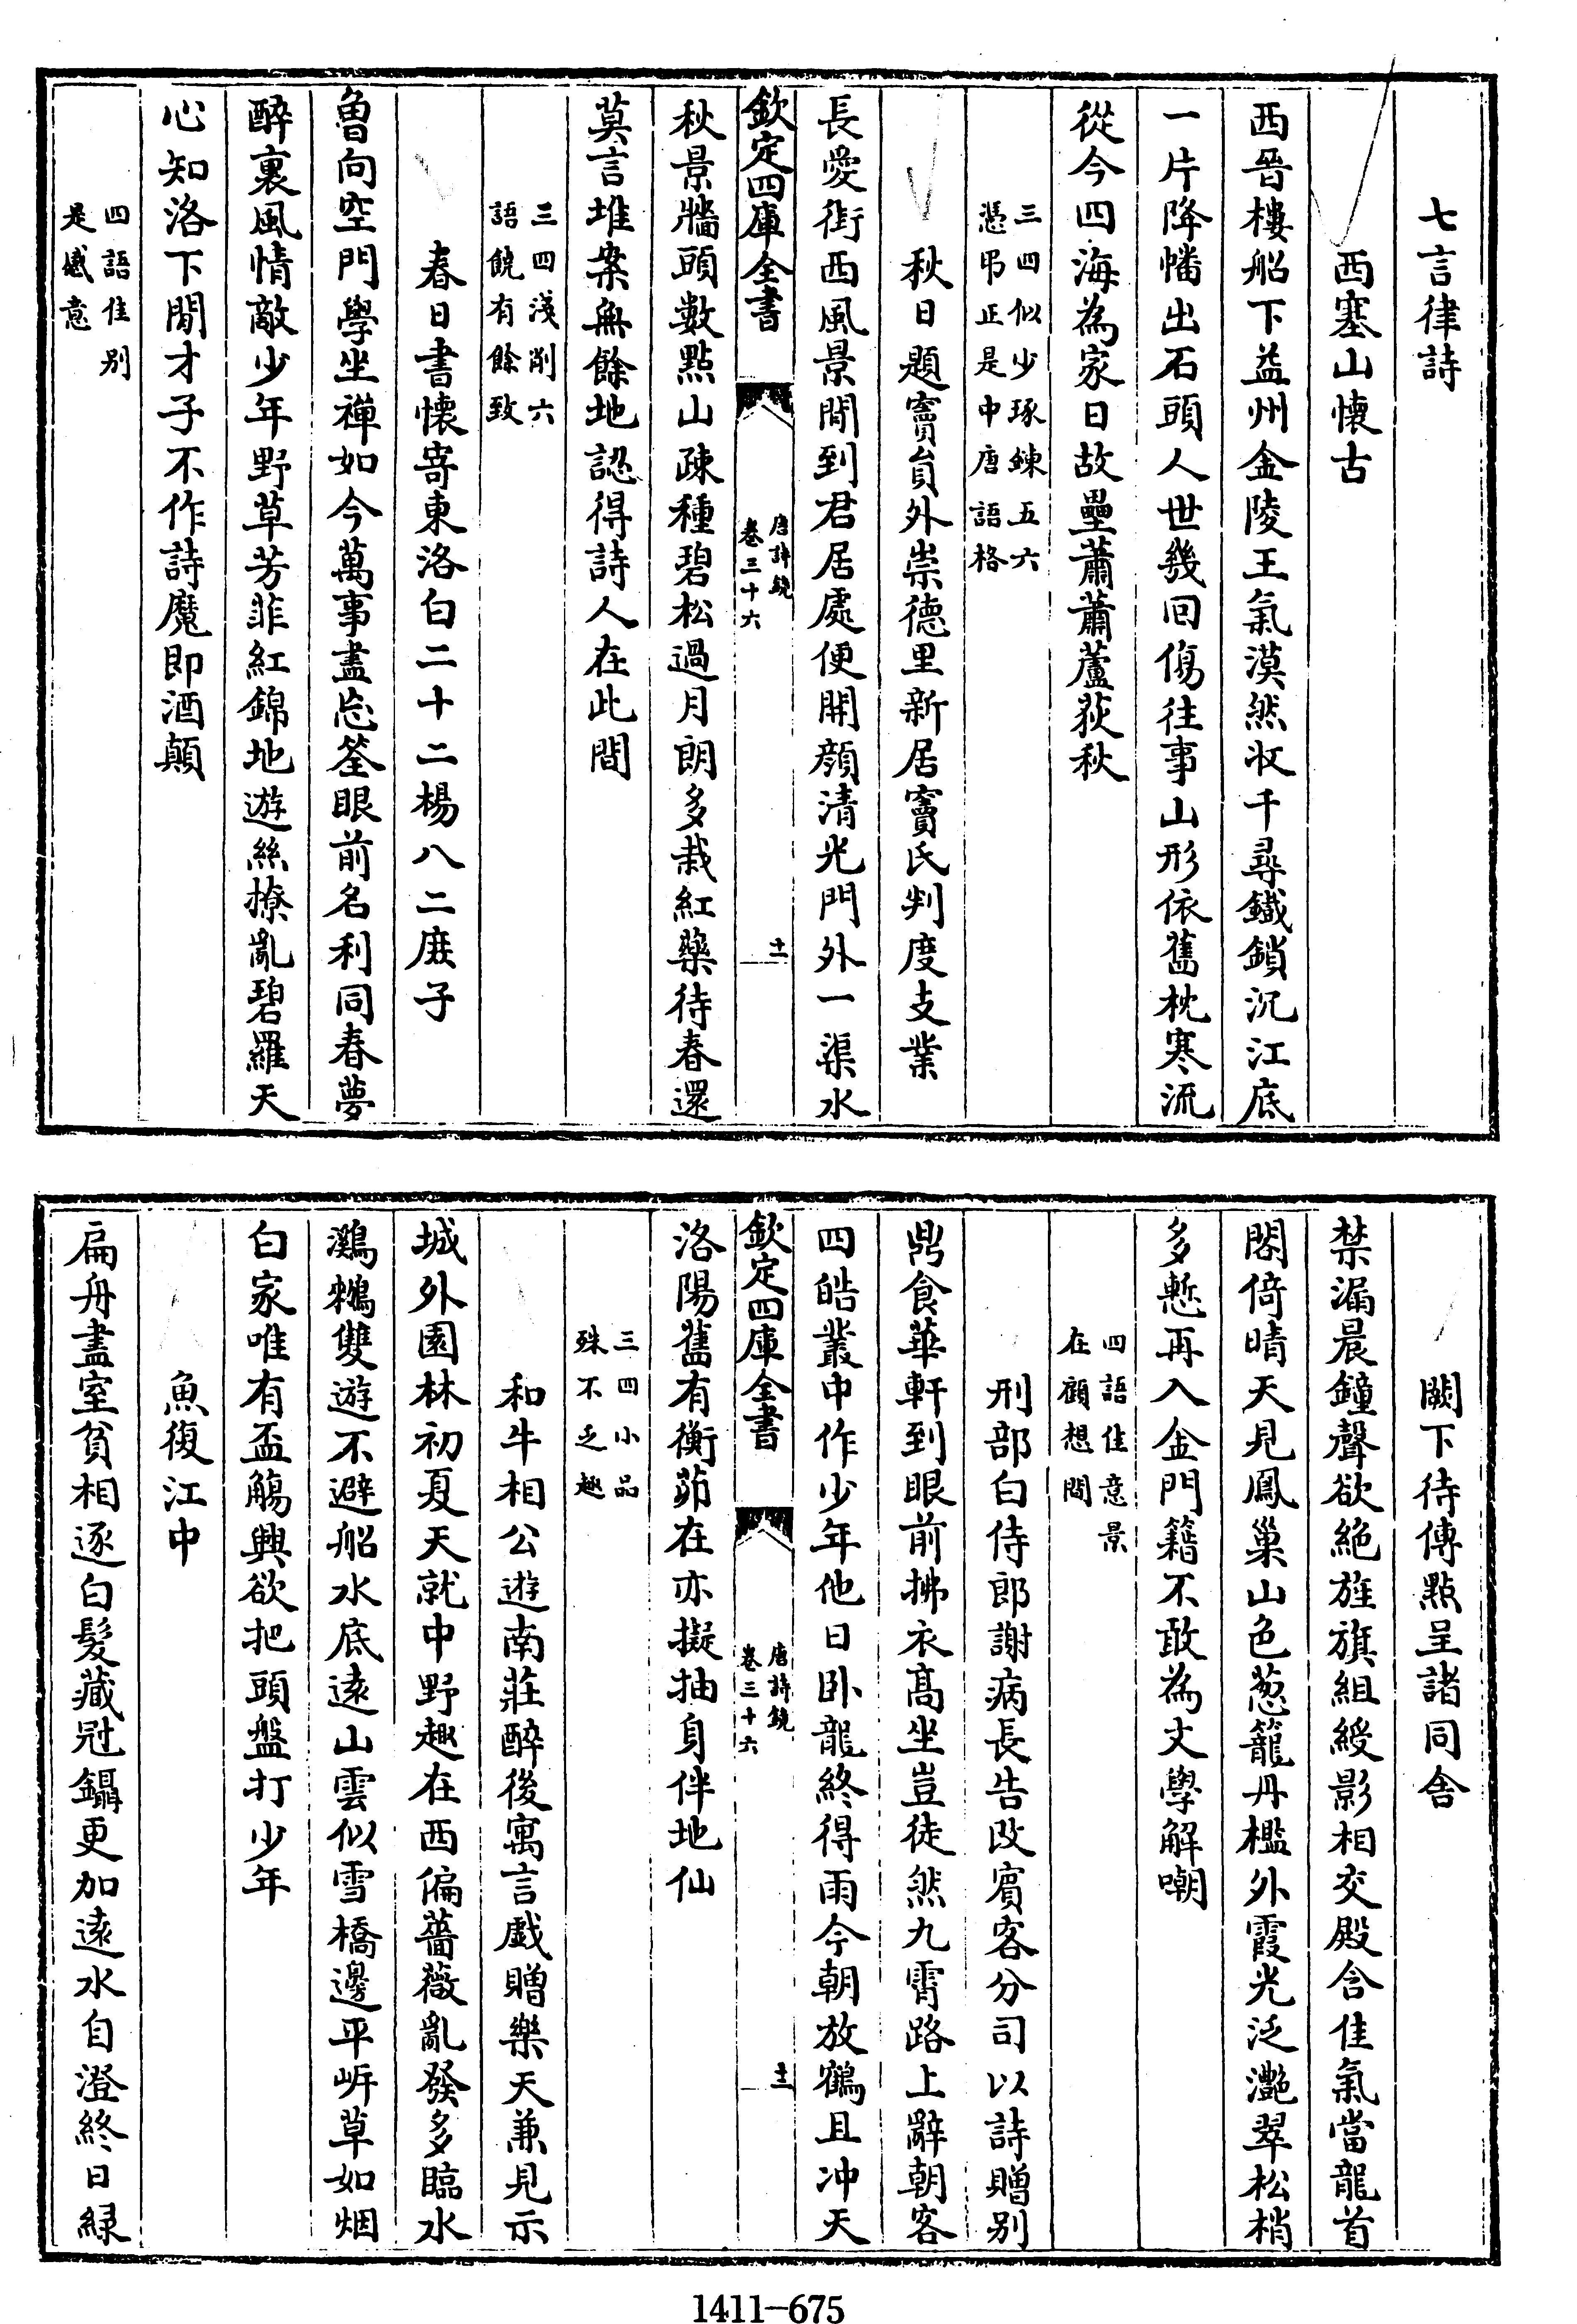 七言律詩
西塞山懷古
西晉樓船下益州金陵王氣漠然收千尋鐵鎖沉江底
一片降幡出石頭人世幾回傷往事山形依舊枕寒流
從今四海為家日故壘蕭蕭蘆荻秋
三四似少琢鍊五六
憑弔正是中唐語格
秋日題竇員外崇德里新居竇氏判度支業
長愛街西風景閒到君居處便開顏清光門外一渠水
欽定四庫全書
唐詩鏡
卷三十六
十一
秋景牆頭數點山疎種碧松過月朗多栽紅藥待春還
莫言堆案無餘地認得詩人在此間
三四淺削六
語饒有餘致
春日書懷寄東洛白二十二楊八二庶子
魯向空門學坐禪如今萬事盡忘筌眼前名利同春夢
醉裏風情敵少年野草芳菲紅錦地遊絲撩亂碧羅天
心知洛下閒才子不作詩魔即酒顛
四語佳别
是感意
闕下待傳點呈諸同舍
禁漏晨鐘聲欲絶旌旗組綬影相交殿含佳氣當龍首
閣倚晴天見鳳巢山色葱籠丹檻外霞光泛灔翠松梢
多慙再入金門籍不敢為文學解嘲
四語佳意景
在顧想間
刑部白侍郎謝病長告改賓客分司以詩贈别
鼎食華軒到眼前拂衣髙坐豈徒然九霄路上辭朝客
四皓叢中作少年他日卧龍終得雨今朝放鶴且冲天
欽定四庫全書
唐詩鏡
卷三十六
十二
洛陽舊有衡茆在亦擬抽身伴地仙
三四小品
殊不乏趣
和牛相公遊南莊醉後寓言戯贈樂天兼見示
城外園林初夏天就中野趣在西偏薔薇亂發多臨水
鸂鶒雙遊不避船水底遠山雲似雪橋邊平岍草如烟
白家唯有盃觴興欲把頭盤打少年
魚復江中
扁舟盡室貧相逐白髮藏冠鑷更加遠水自澄終日緑
1411-675